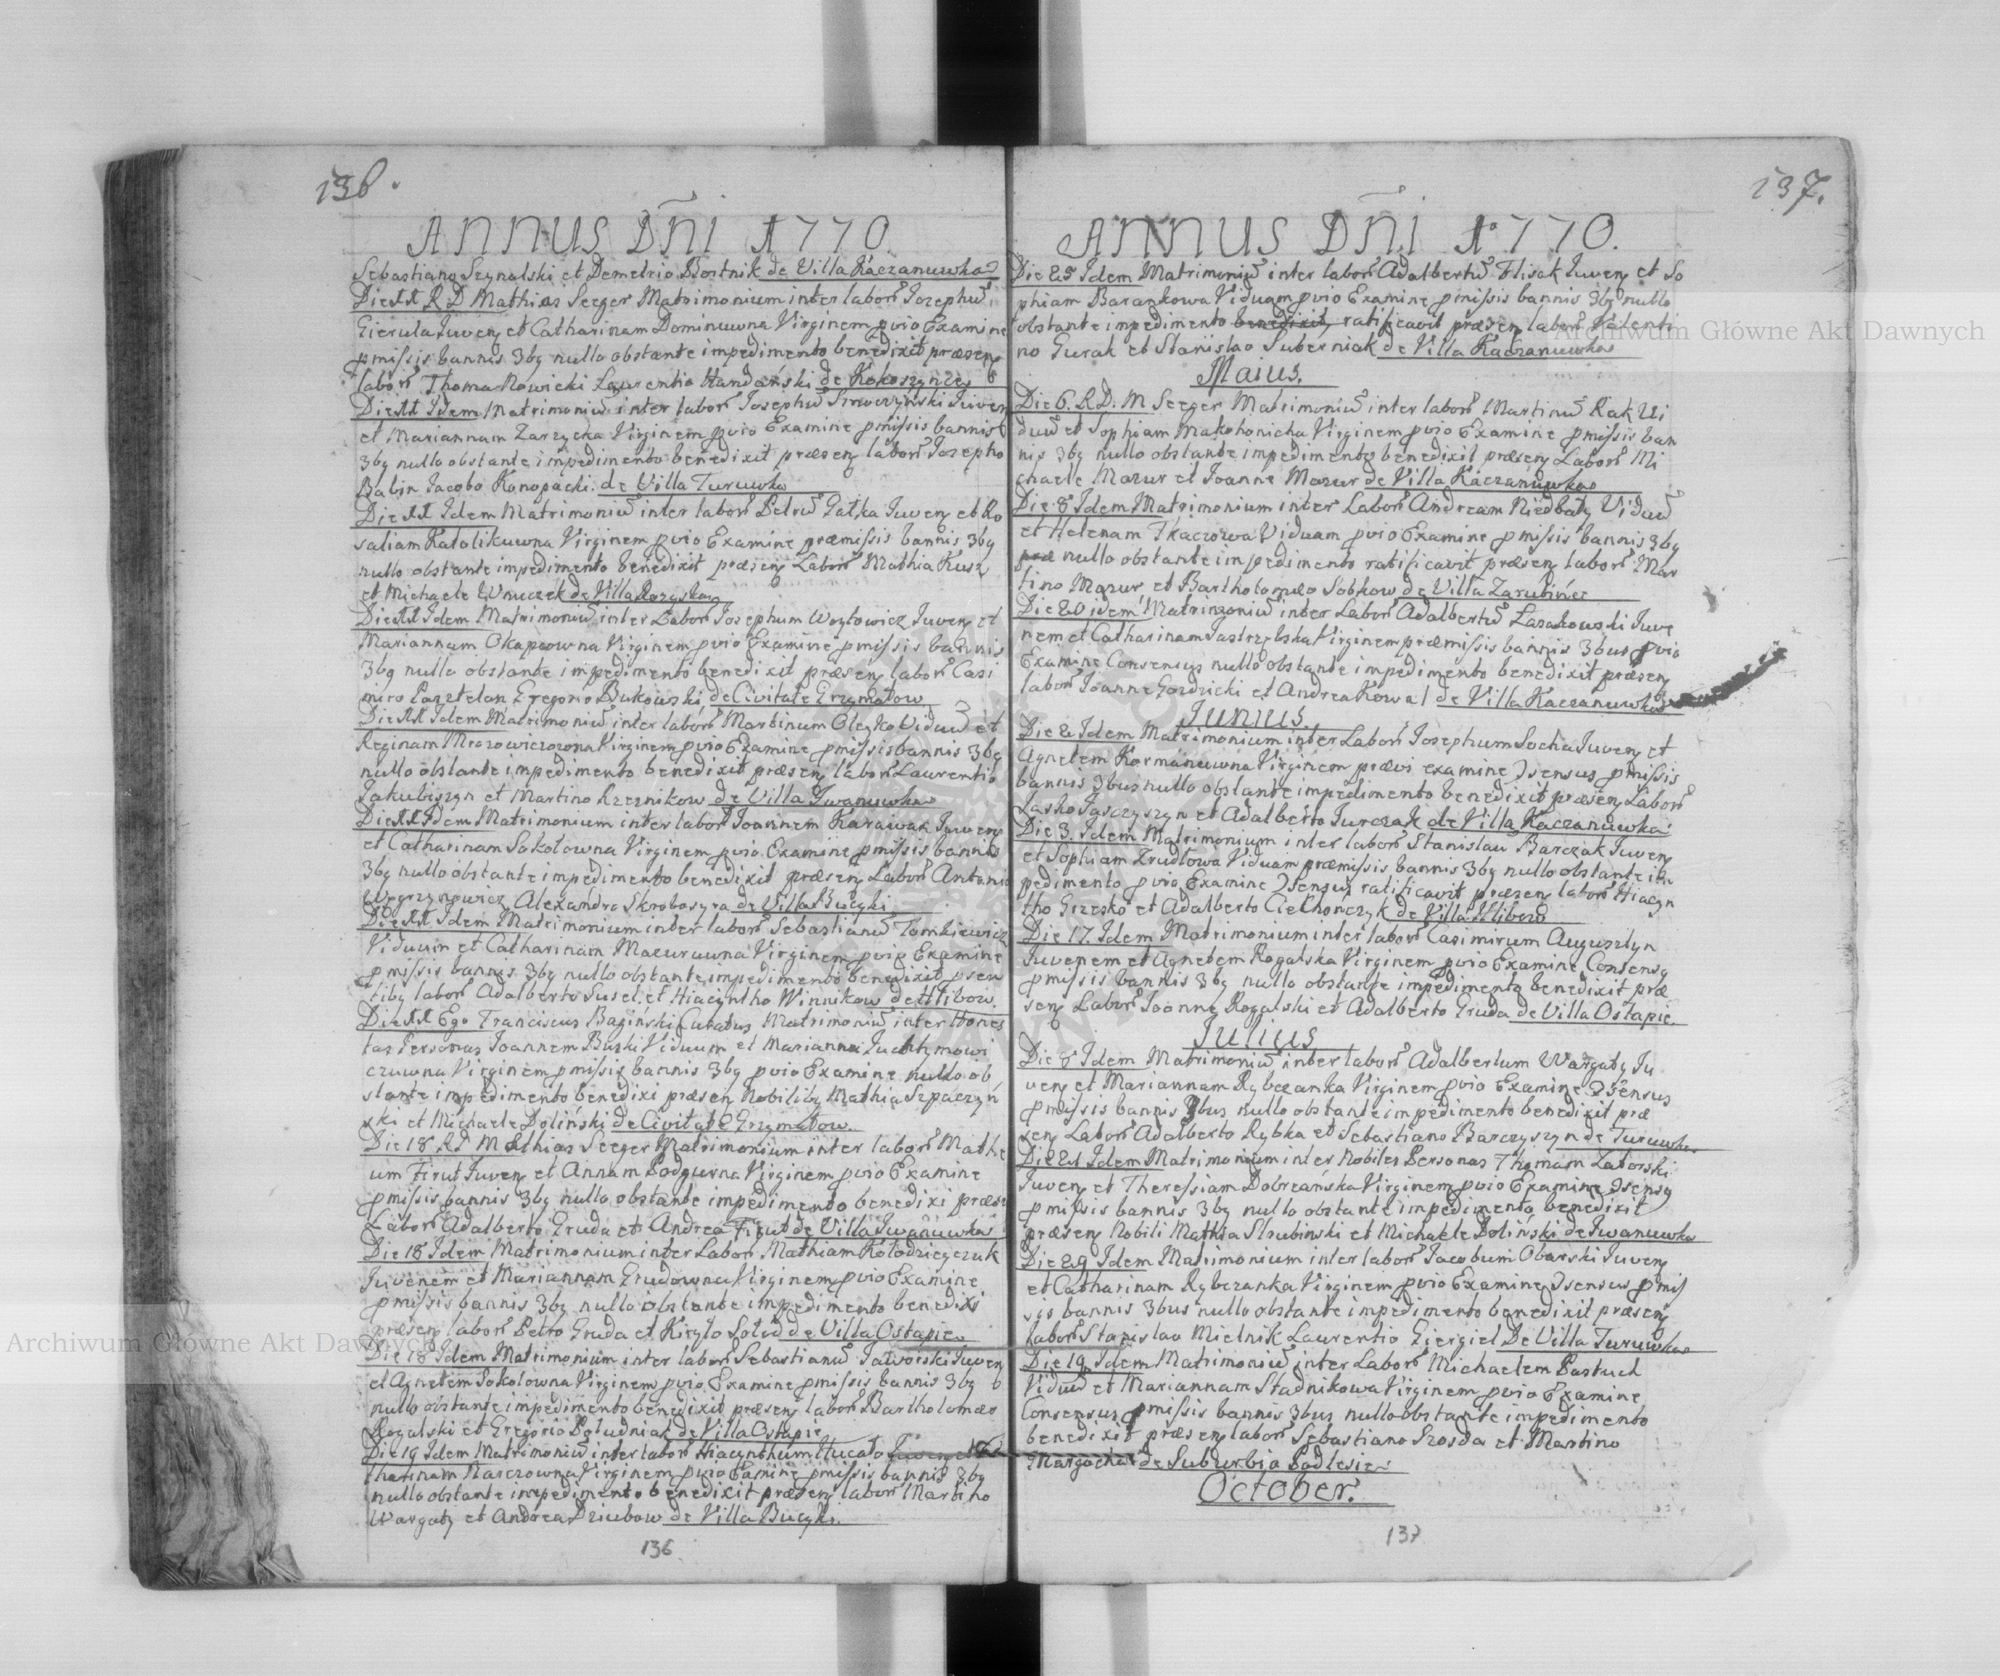 136.
ANNUS DÑI 1770.
Sebastiano Szynalski et Demetrio Bortnik de Villa Kaczanuwka
Die 11 R D Mathias Seeger Matrimonium inter labor Iozephu
Gierula Iuven et Catharinam Dominuwna Virginem pvio Examine
pmissis bannis 3bq nullo obstante impedimento benedixit præsen
labor Thoma Nowicki Laurentio Handański de Kokoszyńce
Die 11 Idem Matrimoniu inter labor Iosephu Iuven
et Mariannam Zarzycka Virginem pvio Examine pmissis bannis
3bq nullo obstante impedimento benedixit præsen labor Iozepho
Balin Jacobo Konopacki de Villa Turuwka
Die 11 Idem Matrimoniu inter labor Petru Gałka Iuven et Ro
saliam Katolikuwna Virginem pvio Examine præmissis bannis 3bq
nullo obstante impedimento benedixit præsen Labor Mathia Kusz
et Michaele Wnuczek de Villa
Die 11 Idem Matrimoniu inter Labor Iozephum Woytowicz Iuven et
Mariannam Okapcowna Virginem pvio Examine pmissis bannis
3bq nullo obstante impedimento benedixit præsen labor Casi
miro Gregorio Bukowski de Civitate Grzymałow
Die 11 Idem Matrimoniu inter labor Martinum Oleyko Viduu et
Reginam Virginem pvio Examine pmissis bannis 3bq
nullo obstante impedimento benedixit præsen labor Laurentio
Jakubiszyn et Martino Rzeznikow de Villa Iwanuwka
Die 11 Idem Matrimonium inter labor Ioannem Karawak Iuven
et Catharinam Sokołowna Virginem pvio Examine pmissis bannis
3bq nullo obstante impedimento benedixit præsen Labor Antonio
Węgrzynowicz Alexandro Skroboszyra de Villa Bucyki
Die 11 Idem Matrimonium inter labor Sebastianu Tomkiewicz
Viduum et Catharinam Mazuruwna Virginem pvio Examine
pmissis bannis 3bq nullo obstante impedimento benedixit psen
tibq labor Adalberto Susel et Hiacyntho Winnikow de Hlibow.
Die 11 Ego Franciscus Bagiński Curatus Matrimoniu inter Hones
tas Personas Ioannem Buski Viduum et Marianna Iuchymowi
czuwna Virginem pmissis bannis 3bq pvio Examine nullo ob
stante impedimento benedixi præsen Nobilibq Mathia Szpaczyń
ski et Michaele Doliński de Civitate Grzymałow.
Die 18 R D Mathias Seeger Matrimonium inter labor Mathe
um Firut Iuven et Annam Podgurna Virginem pvio Examine
pmissis bannis 3bq nullo obstante impedimento benedixi præse
Labor Adalberto Gruda et Andrea Firut de Villa Iwanuwka
Die 18 Idem Matrimonium inter Labor Mathiam Kołodzieyczuk
Iuvenem et Mariannam Grudowna Virginem pvio Examine
pmissis bannis 3bq nullo obstante impedimento benedixi
præsen labor Petro Gruda et Kiryło Sołud de Villa Ostapie
Die 18 Idem Matrimonium inter labor Sebastianu Jaworski Iuven
et Agnetem Sokołowna Virginem pvio Examine pmissis bannis 3bq
nullo obstante impedimento benedixit præsen labor Bartholomæo
Rogalski et Gregorio Południak de Villa Ostapie
Die 19 Idem Matrimoniu inter labor Hiacynthum Hucało Iuven et Ca
tharinam Karczowna Virginem pvio Examine pmissis bannis 3bq
nullo obstante impedimento benedixit præsen labor Martino
Wargaty et Andrea Dziubow de Villa Bucyki.
136
137.
ANNUS DÑI 1770.
Die 25 Idem Matrimoniu inter labor Adalbertu Flisak Iuven et So
phiam Barankowa Viduam pvio Examine pmissis bannis 3bq nullo
obstante impedimento benedixit ratificavit præsen labor Valenti
no Gurak et Stanislao Suberniak de Villa Kaczanuwka
Maius.
Die 6. R.D. M Seeger Matrimoniu inter labor Martinu Rak Vi
duu et Sophiam Makohonicha Virginem pvio Examine pmissis ban
nis 3bq nullo obstante impedimento benedixit præsen Labor Mi
chaele Mazur et Ioanne Mazur de Villa Kaczanuwka
Die 8 Idem Matrimonium inter Labor Andream Niedbały Viduu
et Helenam Tkaczowa Viduam pvio Examine pmissis bannis 3bq
præ nullo obstante impedimento ratificavit præsen labor Mar
tino Mazur et Bartholomæo Sobkow de Villa Zarubińce
Die 20 idem Matrimonium inter Labor Adalbertu Łasakowski Iuve
nem et Catharinam Jastrzębska Virginem præmissis bannis 3bus pvio
Examine Consensus nullo obstante impedimento benedixit præsen
labor Ioanne Gozdzicki et Andrea Kowal de Villa Kaczanuwka
Iunius.
Die 2 Idem Matrimonium inter Labor Iosephum Socha Iuven et
Agnetem Kormanuwna Virginem prævi examine Jsensus pmissis
bannis 3bus nullo obstante impedimento benedixit præsen Labor
Jasko Jaszczyszyn et Adalberto Jurczak de Villa Kaczanuwka
Die 3. Idem Matrimonium inter labor Stanislau Barczak Iuven
et Sophiam Viduam præmissis bannis 3bq nullo obstante im
pedimento pvio Examine Jsensus ratificavit præsen labor Hiacyn
tho Grzesko et Adalberto Ciełhończyk de Villa Hlibow
Die 17. Idem Matrimonium inter labor Casimirum Augusztyn
Iuvenem et Agnetem Rogalska Virginem pvio Examine Consensq
pmissis bannis 3bq nullo obstante impedimento benedixit præ
sen Labor Ioanne Rogalski et Adalberto Gruda de Villa Ostapie.
Iulius
Die 8 Idem Matrimoniu inter labor Adalbertum Wargaty Iu
ven et Mariannam Rybczanka Virginem pvio Examine Jsensus
pmissis bannis 3bus nullo obstante impedimento benedixit præ
sen Labor Adalberto Rybka et Sebastiano Barczyszyn de Turuwka
Die 21 Idem Matrimonium inter Nobiles Personas Thomam Zaborski
Iuven et Theressiam Dobrzańska Virginem pvio Examine Jsensq
pmissis bannis 3bq nullo obstante impedimento benedixit
præsen Nobili Mathia Strubinski et Michaele Doliński de Iwanuwka
Die 29 Idem Matrimonium inter labor Jacobum Obarski Iuven
et Catharinam Rybczanka Virginem pvio Examine Jsensus pmis
sis bannis 3bus nullo obstante impedimento benedixit præsen
labor Stanislao Mielnik Laurentio Giergiel De Villa Turuwka
Die 19 Idem Matrimoniu inter Labor Michaelem Pastuch
Viduu et Mariannam Stadnikowa Virginem pvio Examine
Consensus pmissis bannis 3bus nullo obstante impedimento
benedixit præsen labor Sebastiano Szosda et Martino
Margocha de Suburbia Podlesie
October.
137
Archiwum Główne Akt Dawnych
Archiwum Główne Akt Dawnych